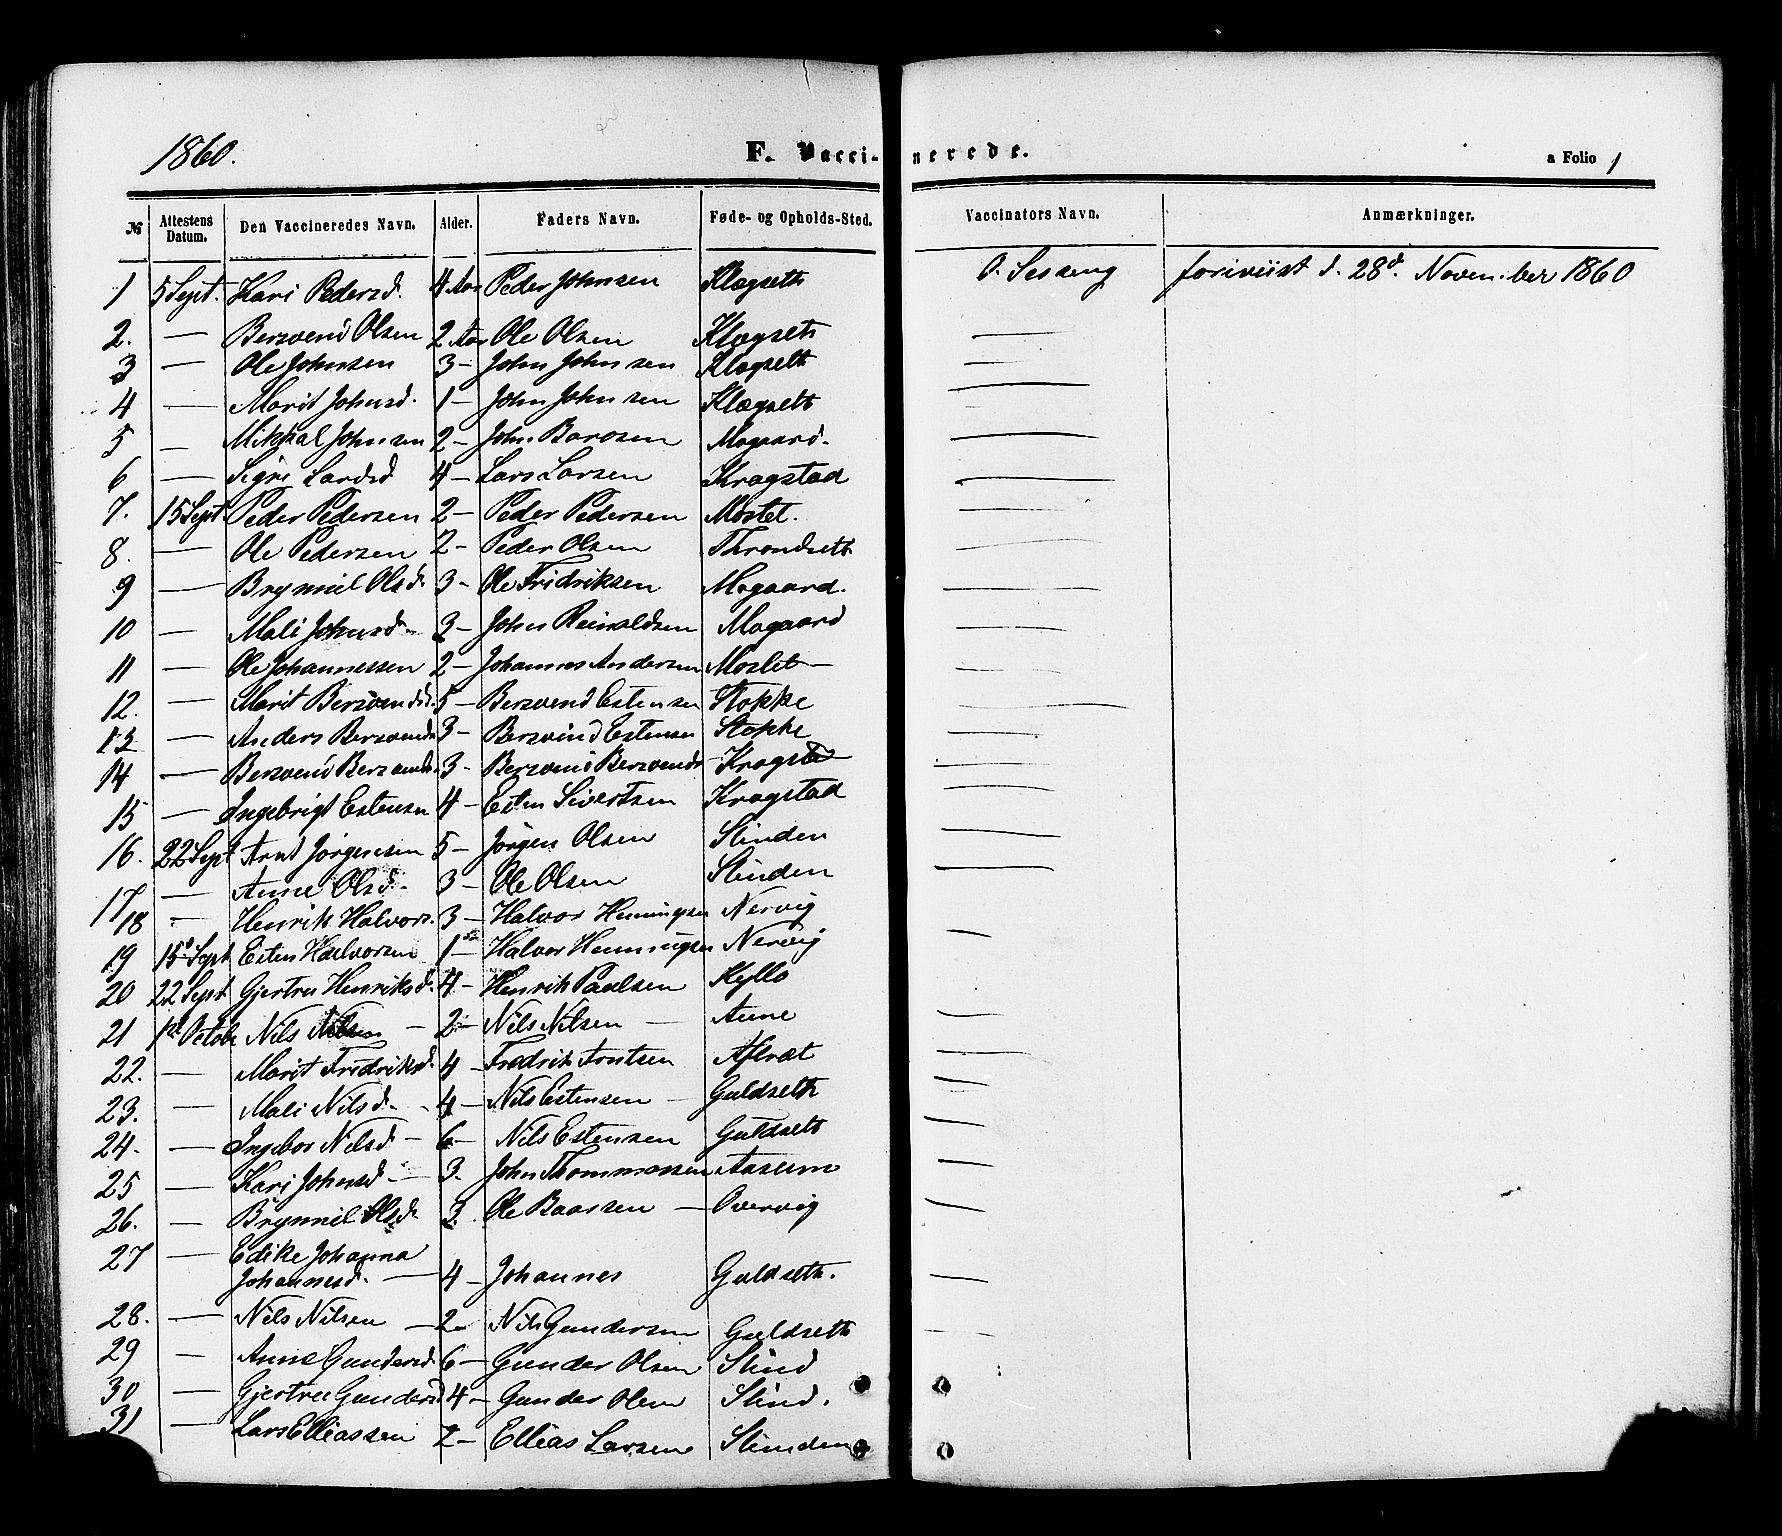 1860.
F. Vacci-nerede.
a Folio 1
№ Attestens Datum. Den Vaccineredes Navn. Alder. Faders Navn. Føde- og Opholds-Sted. Vaccinators Navn. Anmærkninger.
1 5 Sept. Kari Pedersd. 4 Aar Peder Johnsen Klægseth O. Sesseng foreviist d. 28d. November 1860
2. — Bersvend Olsen 2 Aar Ole Olsen Klægseth —
3 — Ole Johnsen 3 — John Johnsen Klægseth —
4 — Marit Johnsd. 1 — John Johnsen Klægseth —
5 — Mikkal Johnsen 2 — John Barosen Mogaard. —
6 — Sigri Larsd 4 — Lars Larsen Kragstad —
7. 15 Sept. Peder Pedersen 2 — Peder Pedersen Mostet. —
8. — Ole Pedersen 2 — Peder Olsen Throndseth —
9 — Brynnil Olsd. 3 — Ole Fridriksen Mogaard. —
10 — Mali Johnsd. 3 — John Reinaldsen Mogaard —
11 — Ole Johannessen 2 — Johannes Andersen Moslet — —
12. — Marit Bersvendsd. 5 — Bersvend Estensen Stokke —
13 — Anders Bersvends 3 — Bersvend Estensen Stokke —
14 — Bersvend Bersvends. 3 — Bersvend Bersvends Kragst —
15 — Ingebrigt Estensen 4 — Esten Sivertsen Kragstad —
16. 22 Sept Arnt Jørgensen 5 — Jørgen Olsen Stinden —
17 — Anne Olsd. 3 — Ole Olsen Stinden —
18 — Henrik Halvors. 3 — Halvor Henningsen Nervig
19 15 Sept Esten Halvorsen 1 — Halvor Henningsen Nervig —
20 22 Sept Gjertru Henriksd. 4 — Henrik Paulsen Kyllo
21 1st Octobr Nils Nilsen — 2 — Nils Nilsen — Aune —
22. — Marit Fridriksd. 4 — Fredrik Arntsen Aflvæt —
23. — Mali Nilsd. — 4 — Nils Estensen — Guldseth —
24. — Ingebor Nilsd — 6 — Nils Estensen Guldseth —
25 — Kari Johnsd — 3. John Thommassen Aaseum —
26. — Brynnil Olsd. 3. Ole Baarsen — Overvig —
27 — Edike Johanna
Johannesd. — 4 — Johannes Guldseth. —
28. — Nils Nilsen — 2 — Nils Gundersen Guldseth —
29 — Anne Gundersd. 6 — Gunder Olsen Stind
30 — Gjertru Gundersd 4 — Gunder Olsen Stind.
31 — Lars Elleassen 2 — Elleas Larsen Stinden